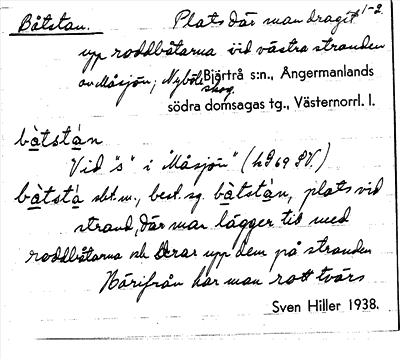 Båtstan. Plats där man dragit 1-2
upp roddbåtarna vid västra stranden
av Måsjön; Nyböle skog.
Bjärtrå s:n., Ångermanlands
södra domsagas tg., Västernorrl. l.
bàtstán
Vid "s" i "Måsjön" (h D 69 SV.)
bàtstá sbt. m., best. sg. bàtstán, plats vid
strand, där man lägger till med
roddbåtarna och drar upp dem på stranden
Härifrån har man rott tvärs
Sven Hiller 1938.